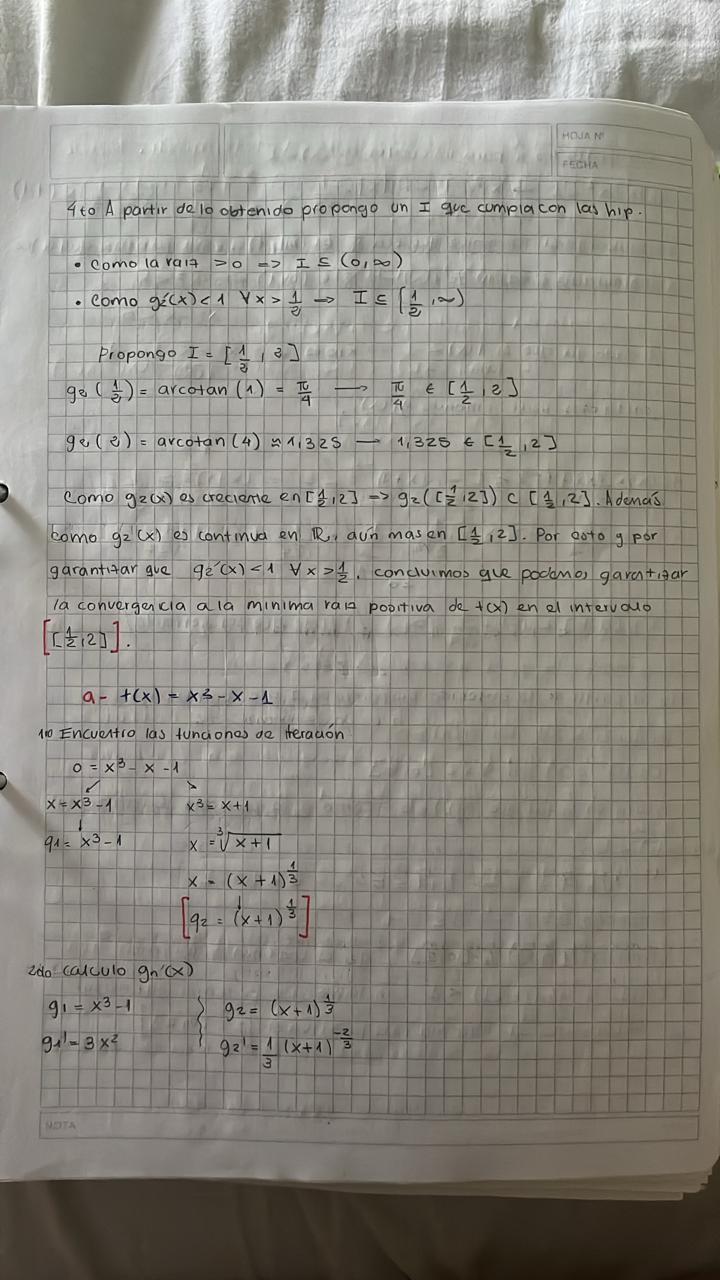 HOJA Nº
FECHA
4to A partir de lo obtenido propongo un I que cumpla con las hip.
• Como la raiz > 0 => I ⊆ (0, ∞)
• Como g2'(x) < 1 ∀ x > 1/2 → I ⊆ [1/2, ∞)
Propongo I = [1/2, 2]
g2(1/2) = arcotan(1) = π/4 → π/4 ∈ [1/2, 2]
g2(2) = arcotan(4) ≈ 1,325 — 1,325 ∈ [1/2, 2]
Como g2(x) es creciente en [1/2, 2] => g2([1/2, 2]) ⊂ [1/2, 2]. Además
como g2'(x) es continua en ℝ, aún mas en [1/2, 2]. Por esto y por
garantizar que g2'(x) < 1 ∀ x > 1/2, concluimos que podemos garantizar
la convergencia a la minima raiz positiva de f(x) en el intervalo
[[1/2, 2]].
a- f(x) = x³ - x - 1
1ro Encuentro las funciones de iteración
0 = x³ - x - 1
x = x³ - 1 x³ = x + 1
g1 = x³ - 1 x = ∛(x + 1)
x = (x + 1)^(1/3)
[g2 = (x + 1)^(1/3)]
2do calculo gn'(x)
g1 = x³ - 1 g2 = (x + 1)^(1/3)
g1' = 3x² g2' = 1/3 (x + 1)^(-2/3)
NOTA